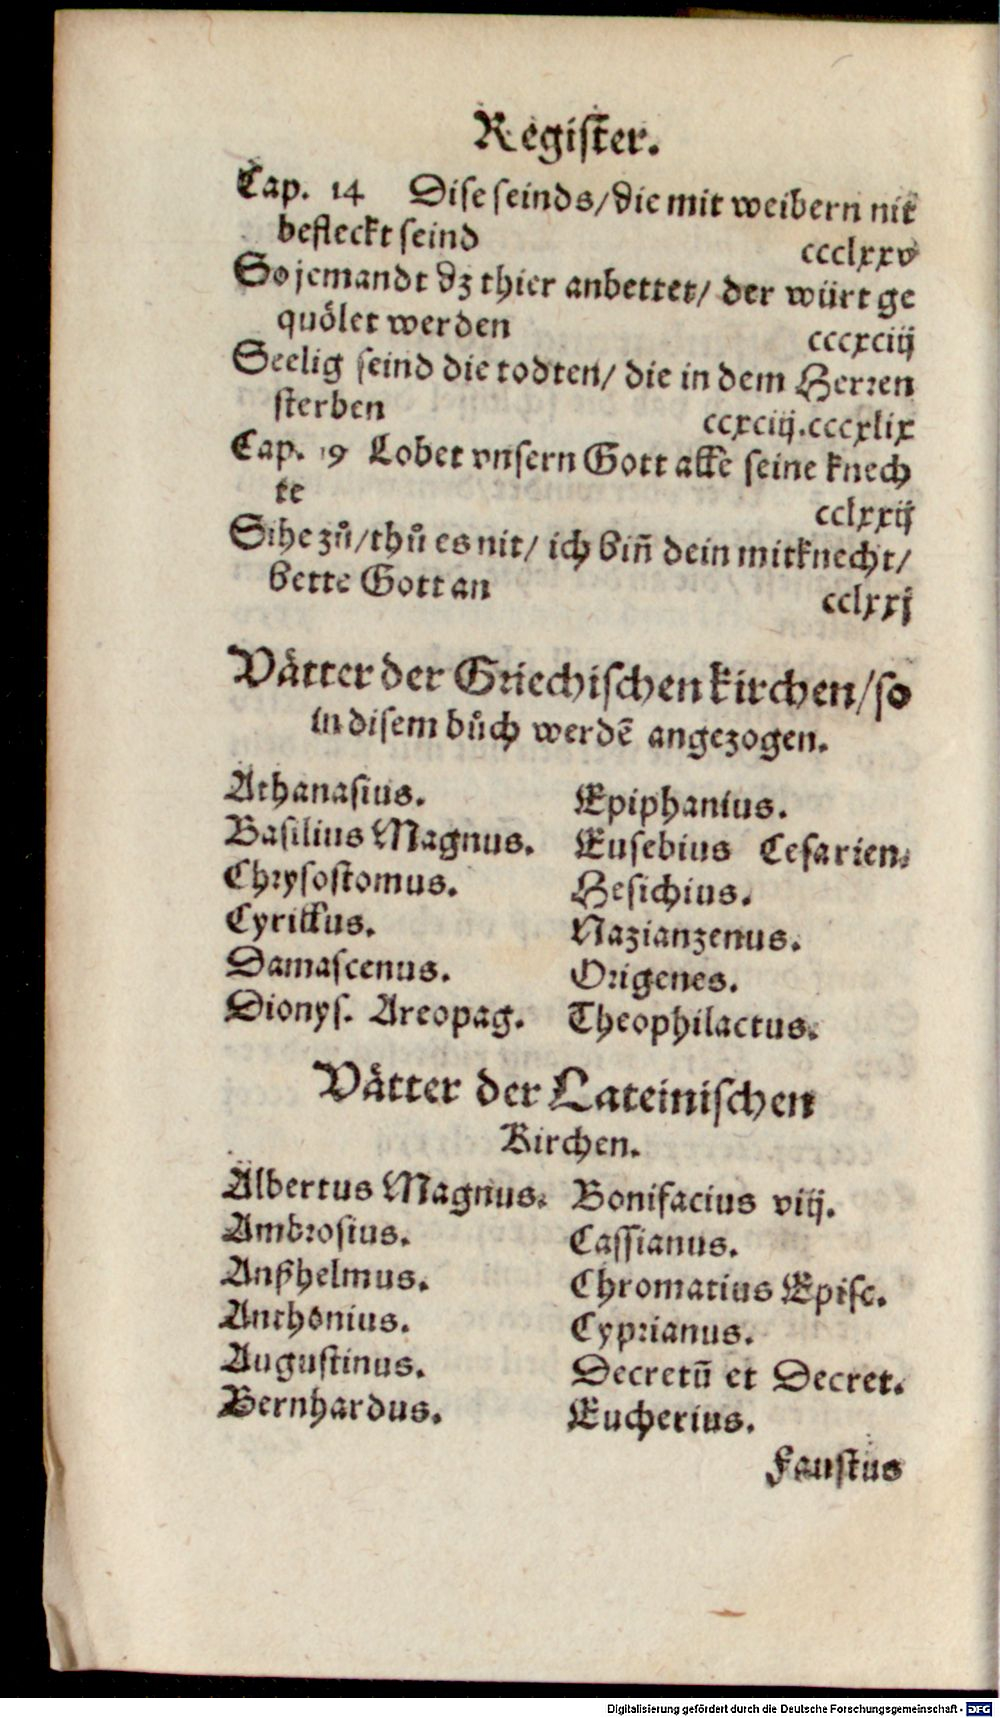 Register.
Cap. 14 Dise seinds/die mit weibern nit
befleckt seind ccclxxv
So jemandt dz thier anbettet/ der würt ge
quölet werden cccxciij
Seelig seind die todten/ die in dem Herren
sterben ccxciij.cccxlix
Cap. 19 Lobet vnsern Gott alle seine knech
te cclxxij
Sihe zů/thů es nit/ ich bin̄ dein mitknecht/
bette Gott an cclxxj
Vätter der Griechischen kirchen/so
in disem bůch werdē angezogen.
Athanasius. Epiphanius.
Basilius Magnus. Eusebius Cesarien.
Chrysostomus. Hesichius.
Cyrillus. Nazianzenus.
Damascenus. Origenes.
Dionys. Areopag. Theophilactus.
Vätter der Lateinischen
Kirchen.
Albertus Magnus. Bonifacius viij.
Ambrosius. Cassianus.
Anßhelmus. Chromatius Episc.
Anthonius. Cyprianus.
Augustinus. Decretū et Decret.
Bernhardus. Eucherius.
Faustus
Digitalisierung gefördert durch die Deutsche Forschungsgemeinschaft - DFG